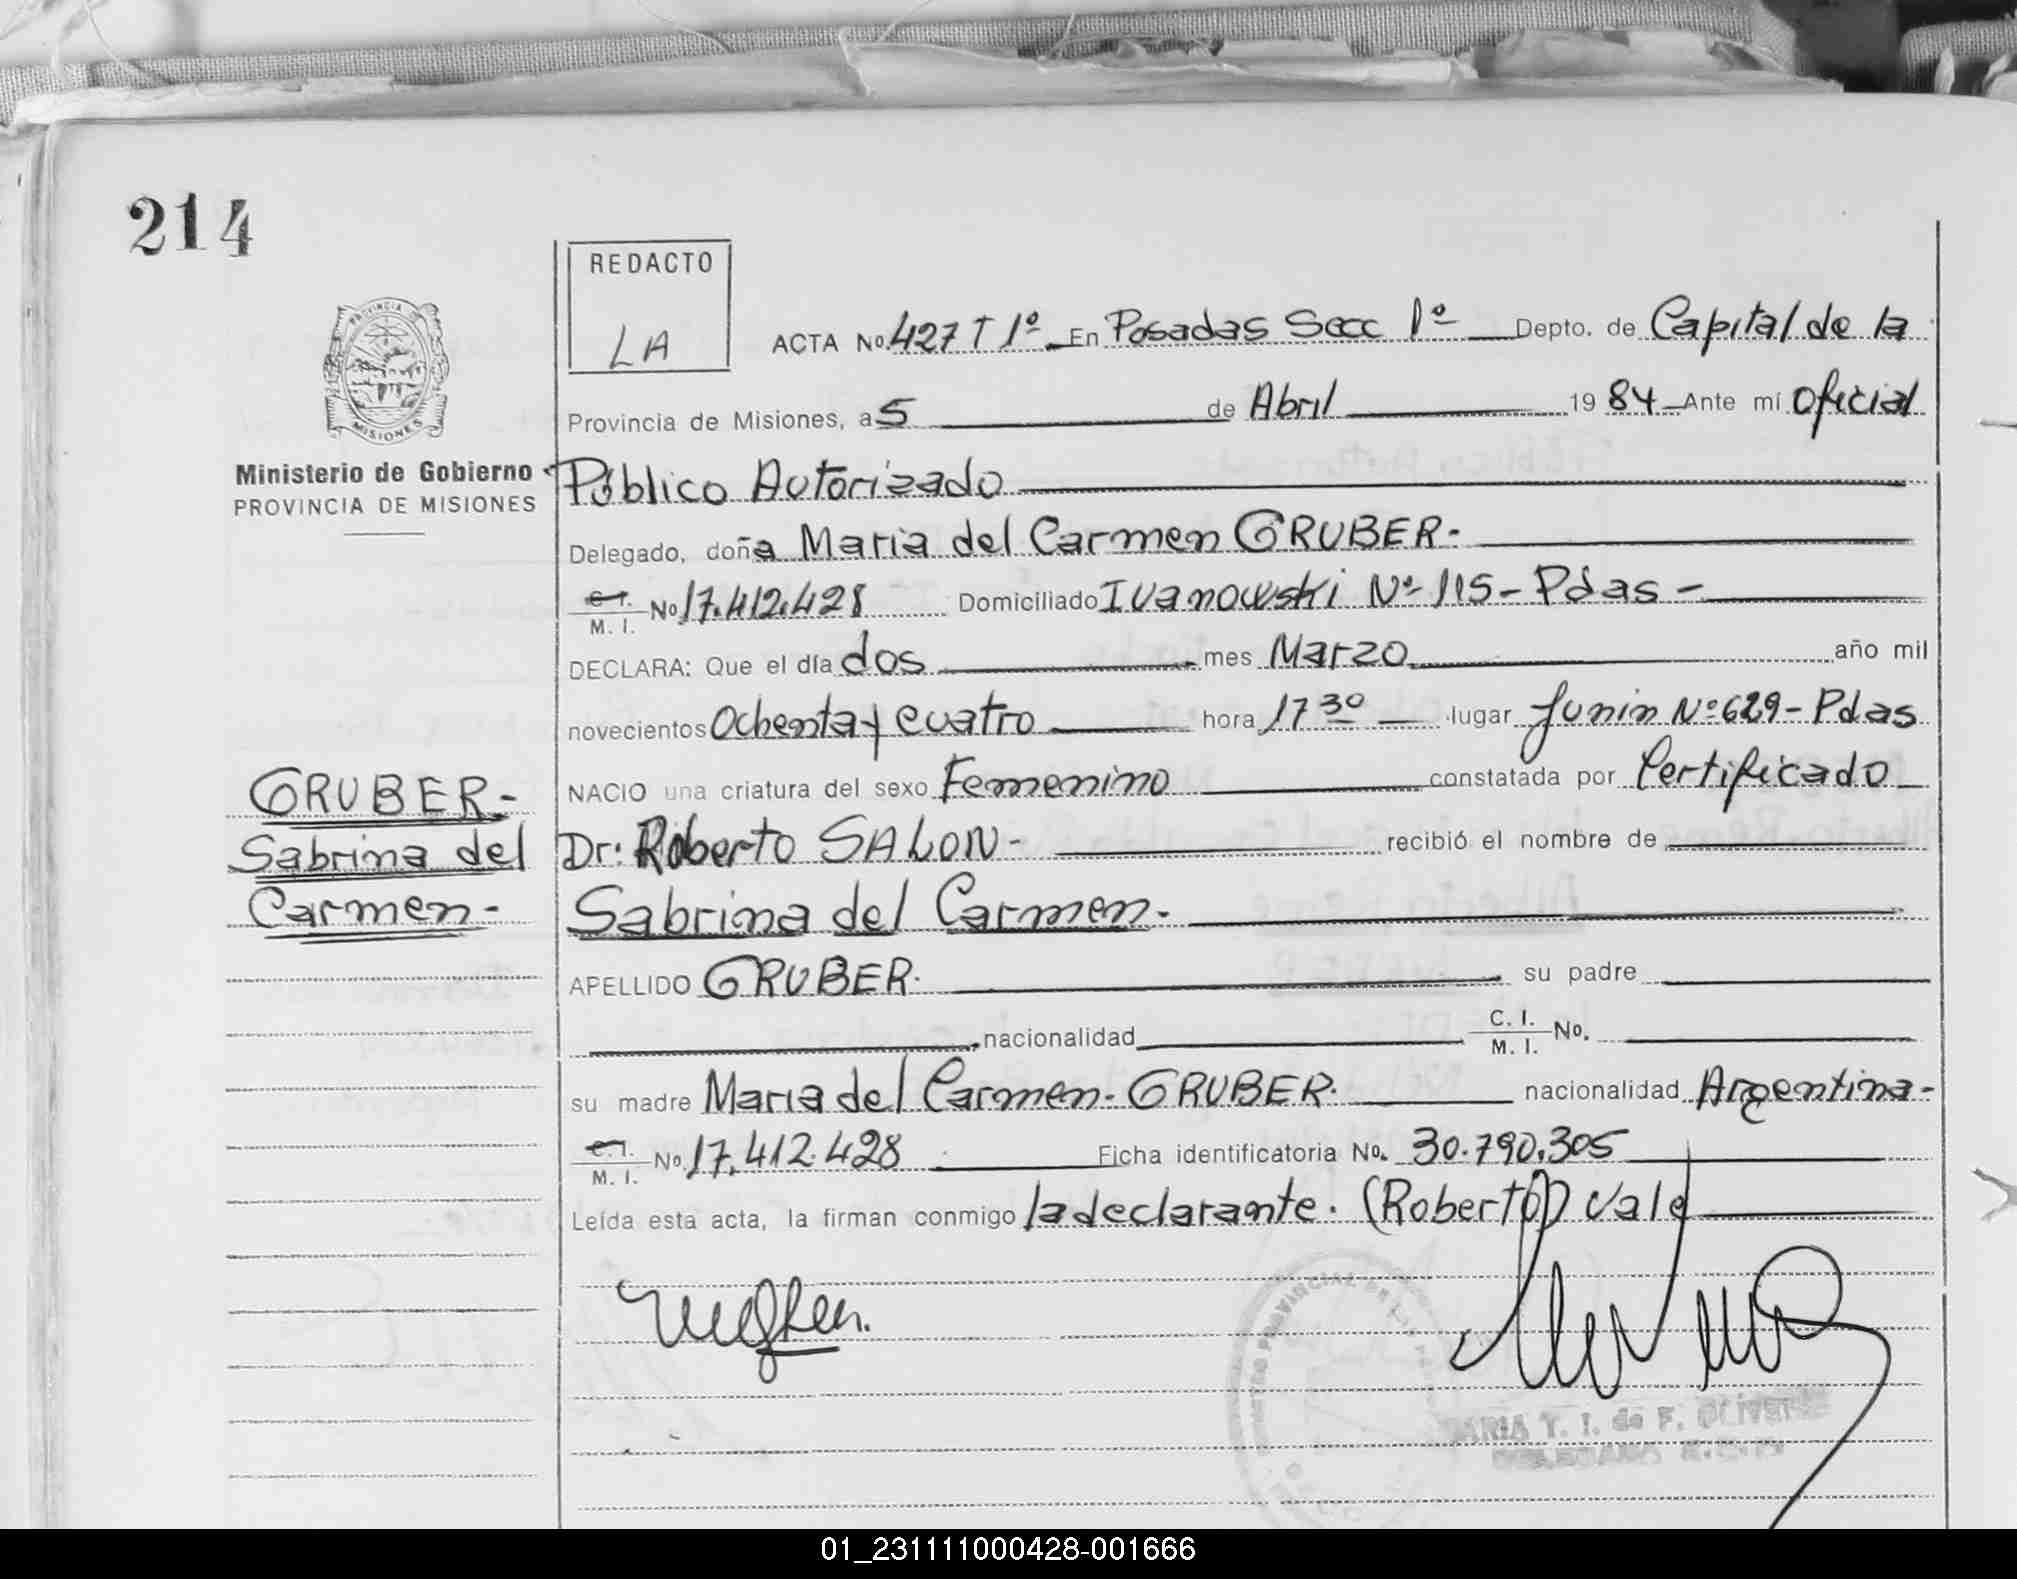 214
REDACTO
LA
PROVINCIA DE
MISIONES
Ministerio de Gobierno
PROVINCIA DE MISIONES
ACTA No. 427 T 1º En Posadas Secc 1º Depto. de Capital de la
Provincia de Misiones, a 5 de Abril 1984 Ante mí Oficial
Público Autorizado
Delegado, doña Maria del Carmen GRUBER.-
C. I. M. I. No 17.412.428 Domiciliado Ivanowski Nº 115 - Pdas -
DECLARA: Que el día dos mes Marzo año mil
novecientos Ochenta y cuatro hora 17 30 lugar Junin Nº 629 - Pdas
NACIO una criatura del sexo Femenino constatada por Certificado
Dr: Roberto SALON - recibió el nombre de
Sabrina del Carmen.
APELLIDO GRUBER. su padre
nacionalidad C. I. M. I. No.
su madre Maria del Carmen. GRUBER. nacionalidad Argentina -
C. I. M. I. No. 17.412.428 Ficha identificatoria No. 30.790.305
Leída esta acta, la firman conmigo la declarante. (Roberto) Vale
GRUBER -
Sabrina del
Carmen -
MARIA T. I. de F.
01_231111000428-001666